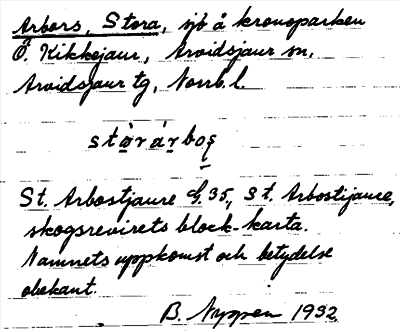 Arbors, Stora, sjö å kronoparken
Ö. Kikkejaur, Arvidsjaur sn,
Arvidsjaur tg, Norrb. l.
stòrárbos
St. Arbostjaure G. 35, St. Arbostijaure,
skogsrevirets block-karta.
Namnets uppkomst och betydelse
obekant.
B. Nyppen 1932